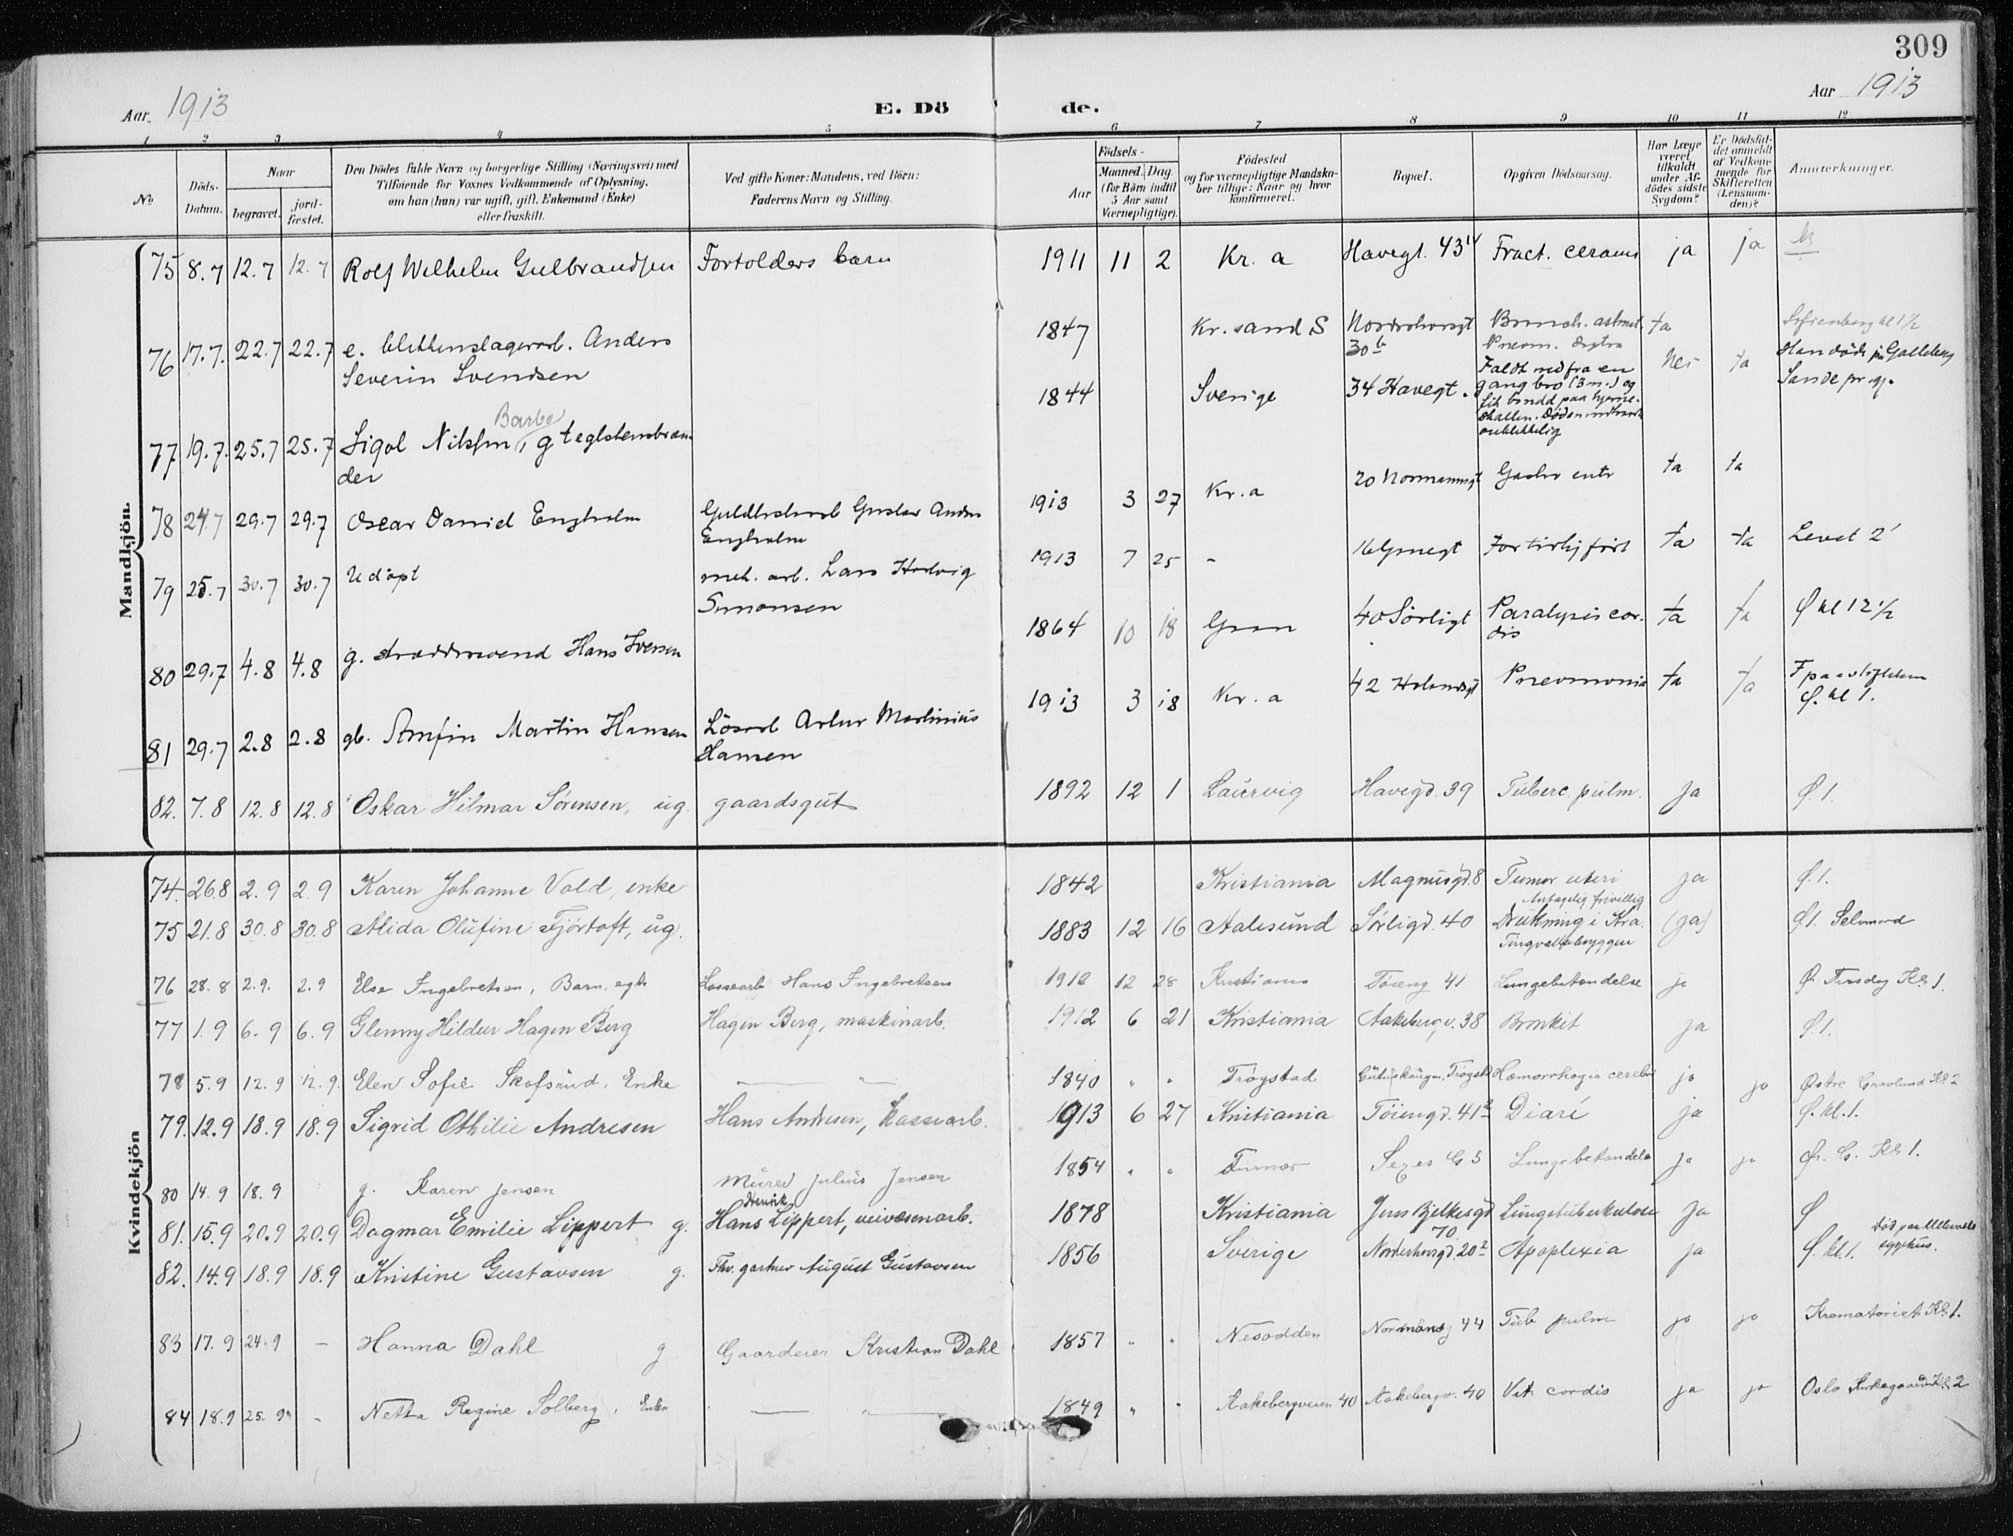 309
Aar 1913
E. Dö de.
Aar 1913
1 2 3 4 5 6 7 8 9 10 11 12
No
Döds-Datum.
Naar
begravet.
jord-fæstet.
Den Dödes fulde Navn og borgerlige Stilling (Næringsvei) med
Tilföiende for Voxnes Vedkommende af Oplysning,
om han (hun) var ugift, gift, Enkemand (Enke)
eller fraskilt.
Ved gifte Koner: Mandens, ved Börn:
Faderens Navn og Stilling.
Födsels-
Aar
Maaned. Dag.
(for Börn indtil
5 Aar samt
Værnepligtige).
Födested
og for værnepligtige Mandska-
ber tillige: Naar og hvor
konfirmeret.
Bopæl.
Opgiven Dödsaarsag.
Har Læge
været
tilkaldt
under Af-
dödes sidste
Sygdom?
Er Dödsfal-
det anmeldt
af Vedkom-
mende for
Skifteretten
(Lensman-
den)?
Anmærkninger.
Mandkjön.
75 8.7 12.7 12.7 Rolf Wilhelm Gulbrandsen Fortolders barn 1911 11 2 Kr. a Havegt. 43 Fract. ja ja
76 17.7. 22.7 22.7 e. blikkenslagerarb. Anders 1847 Kr. sand S 30 Bronch. ja Sofienberg kl 1 1/2
Severin Svendsen
77 19.7. 25.7 25.7 Nilsen, g teglstensbræn- 1844 Sverige 34 Havegt. Faldt ned fra en Nei ja Han döde
der gang bro (3 m.) og Sande pr.gj.
fik paa hjerne-
skallen. Döden
78 24.7 29.7 29.7 Oscar Daniel Engholm Gustav 1913 3 27 Kr. a 20 Gastro entr ja ja
Engholm
79 25.7 30.7 30.7 Udöpt mek. arb. Lars 1913 7 25 - 16 For tidlig födt ja ja Levet 2
Simonsen
80 29.7 4.8 4.8 g. Hans Iversen 1864 10 18 Gran 40 Sörligt Paralysis cor- ja ja Ø kl 12 1/2
dis
81 29.7 2.8 2.8 gb. Arnfin Martin Hansen Lösarb Artur Martinius 1913 3 18 Kr. a 42 Pneumonia ja ja
Hansen Ø. kl 1.
82. 7.8 12.8 12.8 Oskar Hilmar Sørensen, ug. gaardsgut 1892 12 1 Laurvig Havegd. 39 Tuberc. pulm. ja Ø 1.
Kvindekjön
74. 26.8 2.9 2.9 Karen Johanne Vold, enke 1842 Kristiania Magnusgd. 8 Tumor uteri ja Ø. 1.
Antagelig frivillig
75 21.8 30.8 30.8 Alida Olufine Fjörtoft, ug. 1883 12 16 Aalesund Sørligd. 40 Drukning i Kra. (ja) Ø 1. Selvmord
76 28.8 2.9. 2.9 Else Ingebretsen, Barn, egte Lossearb Hans Ingebretsen 12 28 Kristiania Töieng 41 Lungebetendelse ja Ø. Tirsdag Kl 1.
77 1.9 6.9 6.9 Glenny Hildur Hagen Berg Hagen Berg, maskinarb. 1912 6 21 Kristiania Aakebergv. 38 Bronkit ja Ø. 1.
78 5.9 12.9 12.9. Elen Sofie Skofsrud, Enke 1840 " " Trögstad Hæmorrhagia cerebri ja ja Østre Gravlund Kl 2
79. 12.9 18.9 18.9 Sigrid Othilie Andresen Hans Andresen, kassearb. 1913 6 27 Kristiania Töiengd. 41 2 Diaré ja Ø. kl. 1.
80 14.9 18.9 g. Karen Jensen Murer Julius Jensen 1854 " " Lungebetendelse ja ja Ø. G. Kl 1.
Henrik
81. 15.9 20.9 20.9 Dagmar Emilie Lippert g. Hans Lippert, veivæsenarb. 1878 Kristiania Jens Bjelkesgd Lungetuberkulose ja Ø
70
82. 14.9 18.9 18.9 Kristine Gustavsen g. Fhv. gartner August Gustavsen 1856 Sverige 20 2 Apoplexia ja Ø. kl. 1. Död paa Ullevaals sygehus.
83 17.9 24.9 - Hanna Dahl g Gaardeier Kristian Dahl 1857 " " Nesodden 44 Tub pulm ja ja Krematoriet Kl 1.
84 18.9 25.9 - Netta Regine Solberg, Enke 1849 " " Aakebergveien 40 Aakebergv. 40 Vit. cordis ja ja Oslo Kirkegaard Kl 2